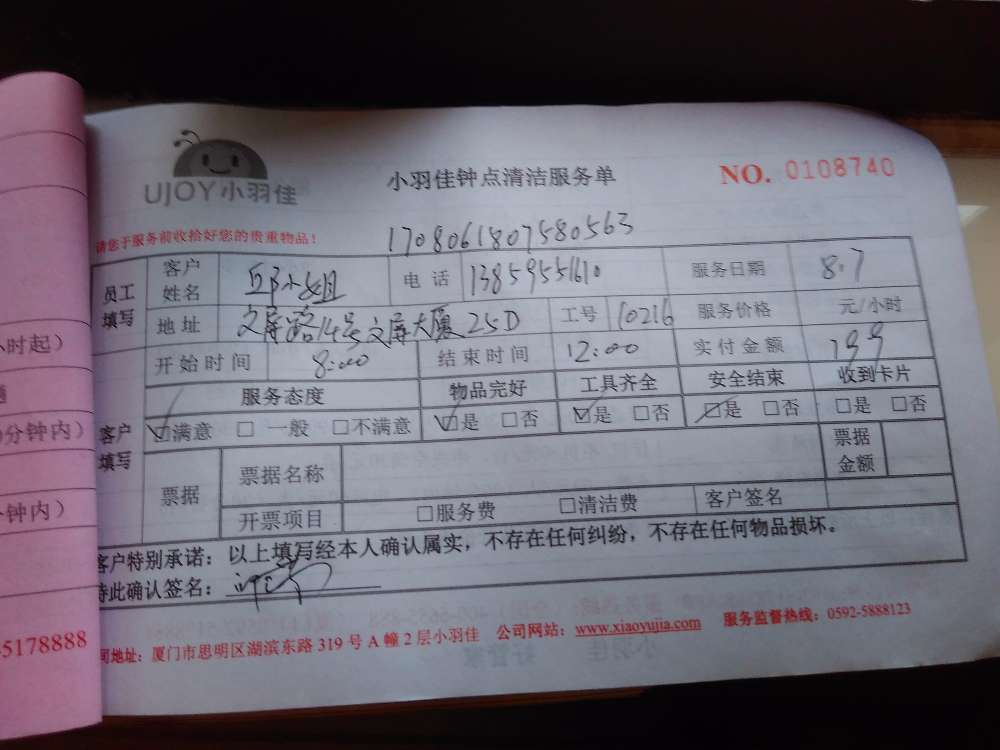 UJOY小羽佳
小羽佳钟点清洁服务单
NO. 0108740
请您于服务前收拾好您的贵重物品！
1708061807580563
员工填写 客户姓名 邱小姐 电话 13859551610 服务日期 8.7
地址 文屏路14号文屏大厦25D 工号 10216 服务价格 元/小时
开始时间 8:00 结束时间 12:00 实付金额 199
客户填写 服务态度 物品完好 工具齐全 安全结束 收到卡片
☑满意 □一般 □不满意 ☑是 □否 ☑是 □否 ☑是 □否 □是 □否
票据 票据名称 票据金额
开票项目 □服务费 □清洁费 客户签名
客户特别承诺：以上填写经本人确认属实，不存在任何纠纷，不存在任何物品损坏。
特此确认签名：
司地址：厦门市思明区湖滨东路319号A幢2层小羽佳 公司网站：www.xiaoyujia.com 服务监督热线：0592-5888123
小时起）
分钟内）
钟内）
5178888